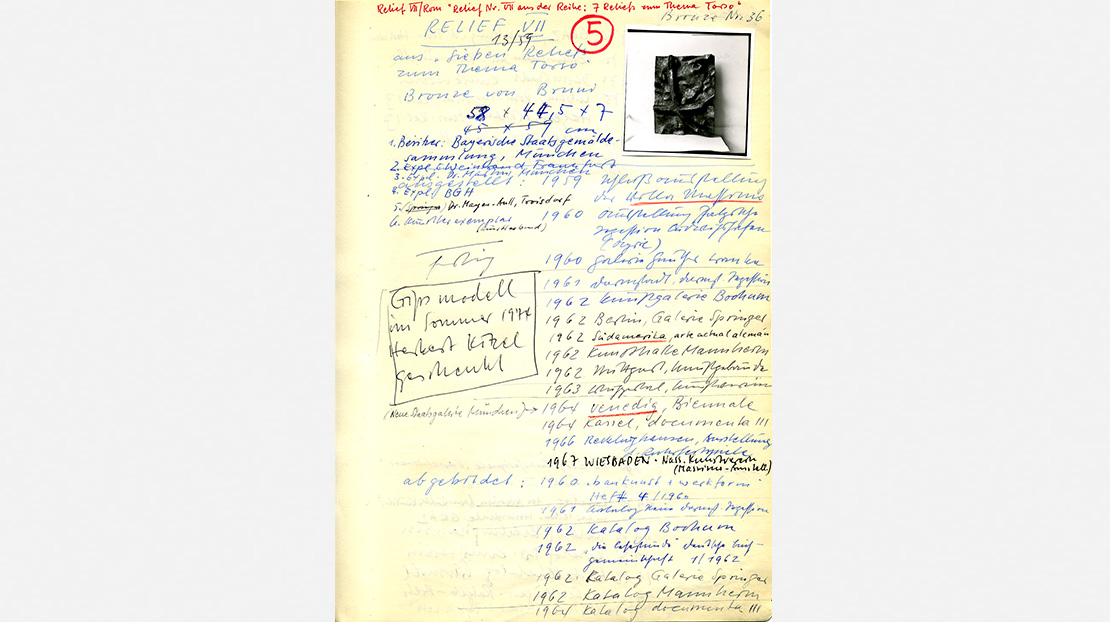 Relief VII/Rom "Relief Nr. VII aus der Reihe: 7 Reliefs zum Thema Torso"
Bronze Nr. 36
RELIEF VII
13/59
5
aus "Sieben Reliefs
zum Thema Torso"
Bronze von Bruni
58 x 44,5 x 7
45 x 59 cm
1. Besitzer: Bayerische Staatsgemälde-
sammlung, München
2. Expl. Frankfurt
3. Expl. Dr. Martin, München
4. Expl. BGH
5. Dr. Mayer- Troisdorf
6. Künstlerexemplar
(Künstlerbund)
ausgestellt: 1959
der Villa Massimo
1960 Ausstellung Pfälzische
Sezession Ludwigshafen
1960 Galerie Günther Franke
1961 Darmstadt, Darmst. Sezession
1962 Kunstgalerie Bochum
1962 Berlin, Galerie Springer
1962 Südamerika, arte actual alemán
1962 Kunsthalle Mannheim
1962 Stuttgart, Kunstgebäude
1963 Wuppertal, Kunstverein
(Neue Staatsgalerie München) → 1964 Venedig, Biennale
1964 Kassel, documenta III
1966 Recklinghausen, Ausstellung
1967 WIESBADEN - Nass. Kunstverein
(Massimo-Ausstell)
Gipsmodell
im Sommer 1974
Herbert Kitzel
geschenkt
abgebildet: 1960 "baukunst + werkform"
Heft 4/1960
1961 Katalog Darmst. Sezession
1962 Katalog Bochum
1962 "die " deutsche Buch-
gemeinschaft 1/1962
1962 Katalog Galerie Springer
1962 Katalog Mannheim
1964 Katalog documenta III